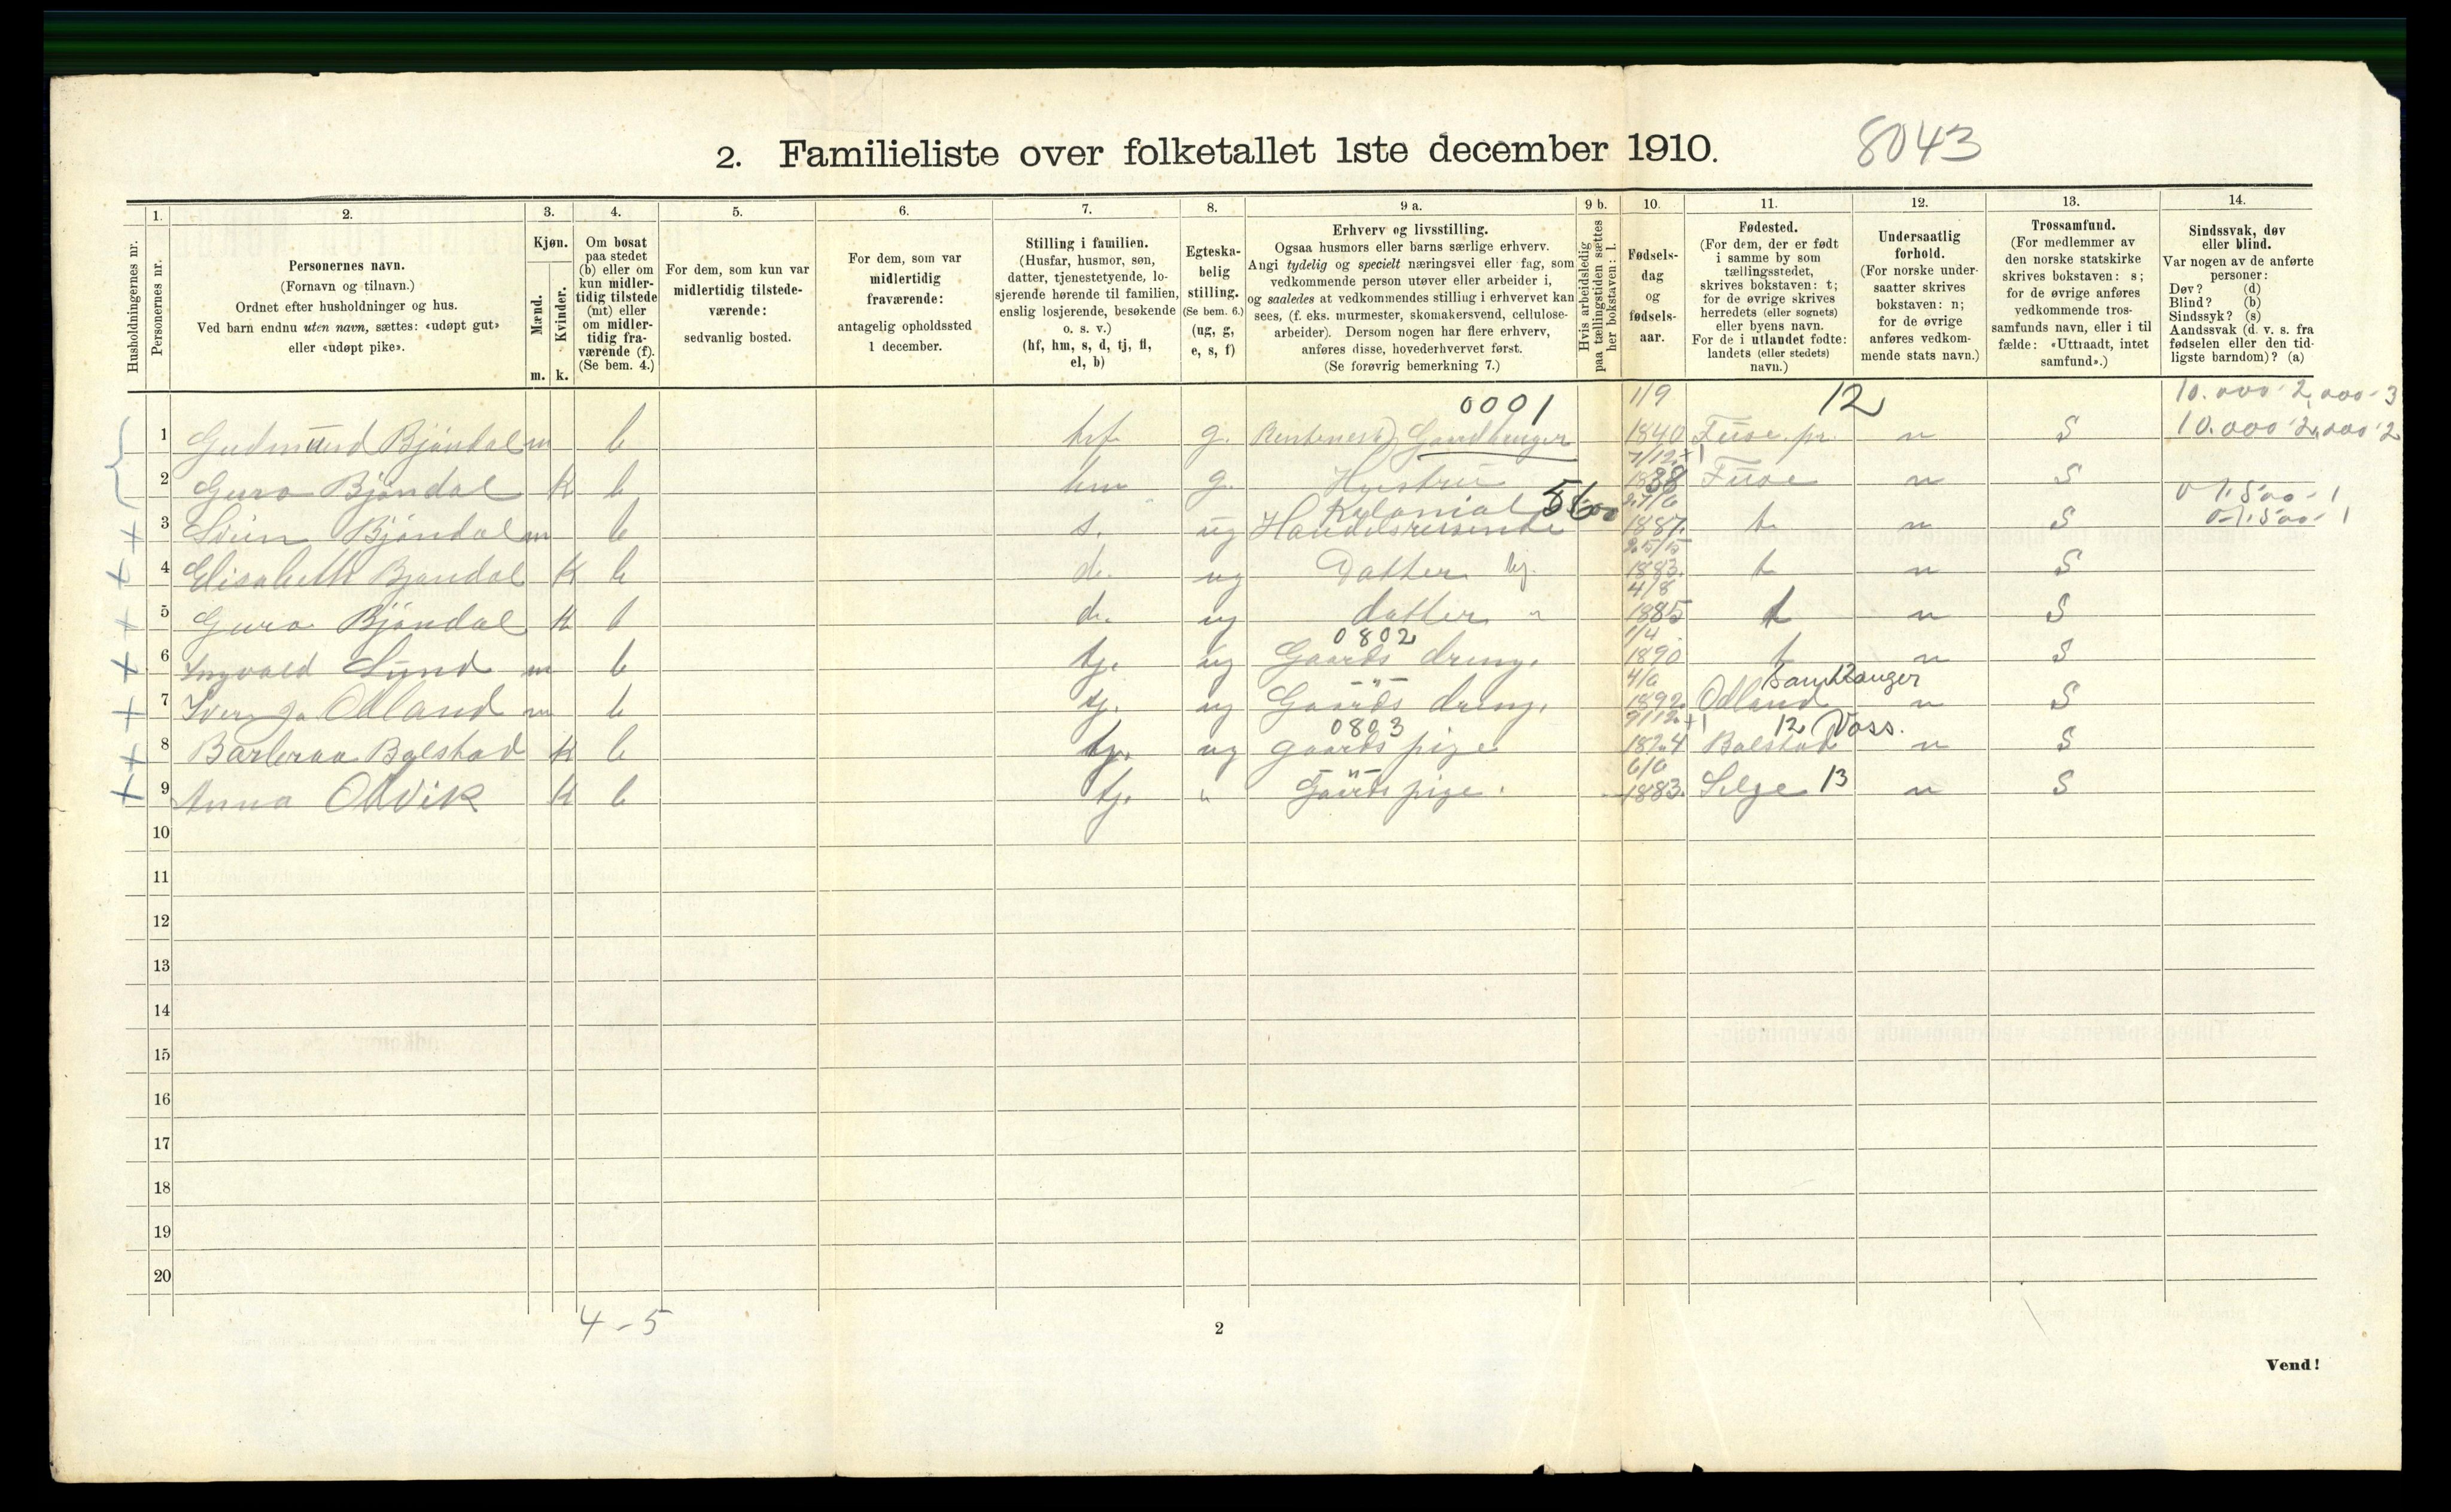 2. Familieliste over folketallet 1ste december 1910.
8043
Husholdningernes nr.
1.
Personernes nr.
2.
Personernes navn.
(Fornavn og tilnavn.)
Ordnet efter husholdninger og hus.
Ved barn endnu uten navn, sættes: «udøpt gut»
eller «udøpt pike».
3.
Kjøn.
Mænd.
Kvinder.
m. k.
4.
Om bosat
paa stedet
(b) eller om
kun midler-
tidig tilstede
(mt) eller
om midler-
tidig fra-
værende (f).
(Se bem. 4.)
5.
For dem, som kun var
midlertidig tilstede-
værende:
sedvanlig bosted.
6.
For dem, som var
midlertidig
fraværende:
antagelig opholdssted
1 december.
7.
Stilling i familien.
(Husfar, husmor, søn,
datter, tjenestetyende, lo-
sjerende hørende til familien,
enslig losjerende, besøkende
o. s. v.)
(hf, hm, s, d, tj, fl,
el, b)
8.
Egteska-
belig
stilling.
(Se bem. 6.)
(ug, g,
e, s, f)
9 a.
Erhverv og livsstilling.
Ogsaa husmors eller barns særlige erhverv.
Angi tydelig og specielt næringsvei eller fag, som
vedkommende person utøver eller arbeider i,
og saaledes at vedkommendes stilling i erhvervet kan
sees, (f. eks. murmester, skomakersvend, cellulose-
arbeider). Dersom nogen har flere erhverv,
anføres disse, hovederhvervet først.
(Se forøvrig bemerkning 7.)
9 b.
Hvis arbeidsledig
paa tællingstiden sættes
her bokstaven: l.
10.
Fødsels-
dag
og
fødsels-
aar.
11.
Fødested.
(For dem, der er født
i samme by som
tællingsstedet,
skrives bokstaven: t;
for de øvrige skrives
herredets (eller sognets)
eller byens navn.
For de i utlandet fødte:
landets (eller stedets)
navn.)
12.
Undersaatlig
forhold.
(For norske under-
saatter skrives
bokstaven: n;
for de øvrige
anføres vedkom-
mende stats navn.)
13.
Trossamfund.
(For medlemmer av
den norske statskirke
skrives bokstaven: s;
for de øvrige anføres
vedkommende tros-
samfunds navn, eller i til
fælde: «Uttraadt, intet
samfund».)
14.
Sindssvak, døv
eller blind.
Var nogen av de anførte
personer:
Døv? (d)
Blind? (b)
Sindssyk? (s)
Aandssvak (d. v. s. fra
fødselen eller den tid-
ligste barndom)? (a)
0001 1/9 12 10.000-2,000-3
1 Gudmund Bjöndal m b hf g. 1840 Fuse pr. n S 10.000-2,000-2
7/12 +1
2 Guro Bjöndal K b hm g. Hustru 1838 Fuse n S
Kolonial 5600 27/6 0-1,500-1
3 Svein Bjöndal m b s. ug Handelsreisende 1887 t n S 0-1,500-1
25/5
4 Elisabeth Bjöndal K b d. ug Datter hj. 1883 t n S
4/8
5 Guro Bjöndal K b d. ug datter " 1885 t n S
0802 1/4
6 Ingvald Lund m b tj. ug Gaards dreng. 1890 t n S
-"- 4/6 Samnanger 12
7 Odland m b tj. ug Gaards dreng. 1892 Odland n S
0803 9/12 +1 12 Voss.
8 Barbraa Bolstad K b tj. ug gaards pige 1874 Bolstad n S
-"- 6/6
9 Anna Odvik K b tj. " Gaards pige. 1883. Selje 13 n S
10
11
12
13
14
15
16
17
18
19
20
4-5
2
Vend!